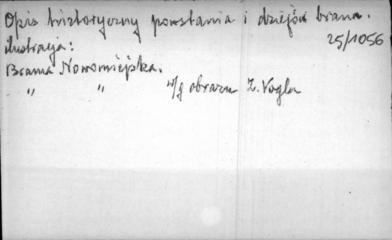 Opis historyczny powstania i dziejów brama.
25/1056
ilustracja:
Brama Nowomiejska.
" " w/g obrazu Z. Vogla